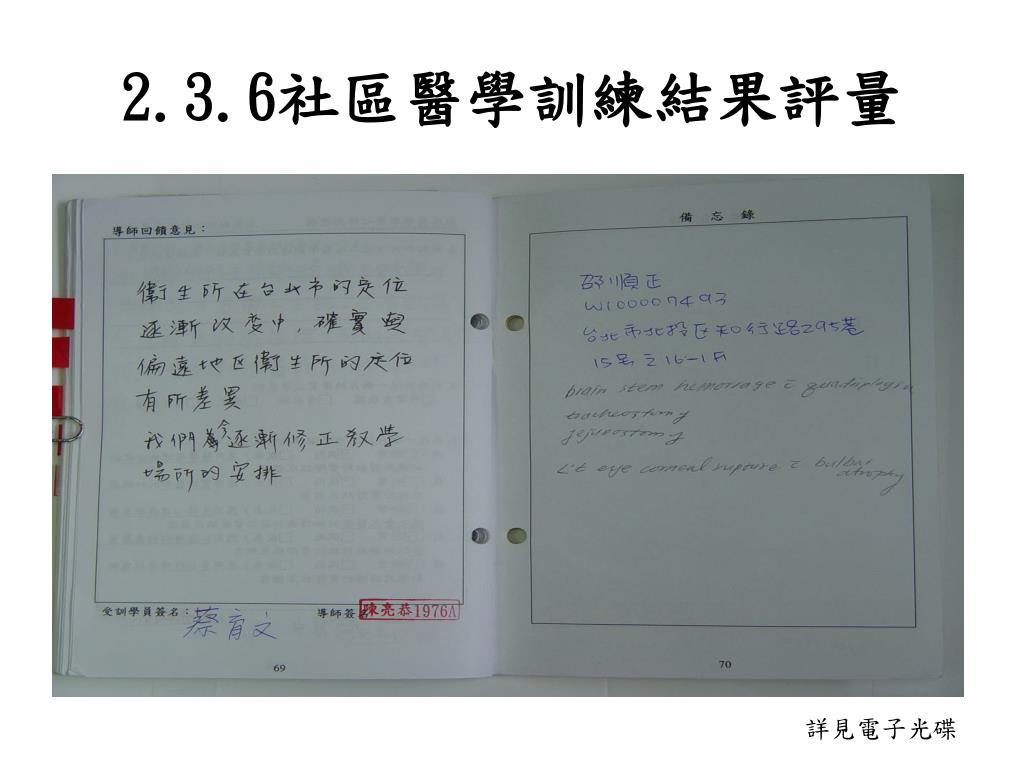 2.3.6社區醫學訓練結果評量
導師回饋意見：
衛生所在台北市的定位
逐漸改變中，確實與
偏遠地区衛生所的定位
有所差異
我們會逐漸修正教學
場所的安排
受訓學員簽名：蔡育文
導師簽名 陳亮恭1976A
69
備忘錄
邵順正
W100007493
台北市北投区知行路295巷
15号之16-1F
brain stem hemorrage c̄ quadriplegia
tracheostomy
jejunostomy
L't eye corneal rupture c̄ bulbar
atrophy
70
詳見電子光碟